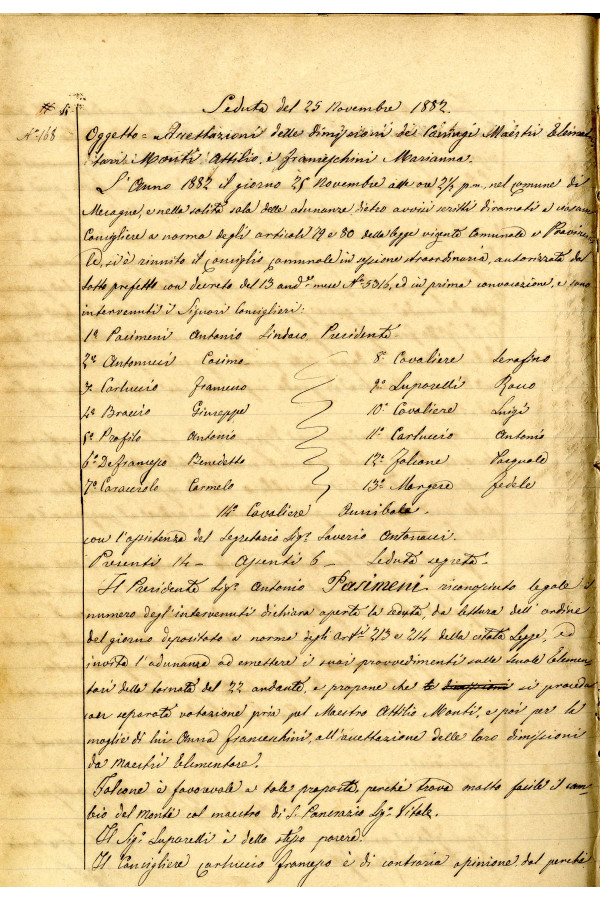 Seduta del 25 Novembre 1882.
N.° 168
Oggetto = Accettazioni delle dimissioni dei Coniugi Maestri Elemen-
tari: Monti Attilio, e Franceschini Marianna.
L'Anno 1882 il giorno 25 Novembre alle ore 2½ p.m. nel comune di
Mesagne, e nella solita sala delle adunanze, dietro avvisi scritti diramati a ciascun
Consigliere a norma degli articoli 79 e 80 della legge vigente Comunale e Provincia-
le, si è riunito il consiglio comunale in sessione straordinaria, autorizzata dal
Sotto prefetto con decreto del 13 and.e mese N.° 5316, ed in prima convocazione, e sono
intervenuti i Signori Consiglieri:
1° Pasimeni Antonio Sindaco Presidente
2° Antonucci Cosimo 8° Cavaliere Serafino
3° Carluccio Francesco 9° Luparelli Rocco
4° Braccio Giuseppe 10° Cavaliere Luigi
5° Profilo Antonio 11° Carluccio Antonio
6° Defrancesco Benedetto 12° Falcone Pasquale
7° Caracciolo Carmelo 13° Morgese Fedele
14° Cavaliere Annibale.
con l'assistenza del Segretario Sig.r Saverio Antonucci.
Presenti 14 — Assenti 6 — Seduta segreta.
Il Presidente Sig.r Antonio Pasimeni riconosciuto legale il
numero degl'intervenuti dichiara aperta la seduta, da lettura dell'ordine
del giorno depositato a norma degli art.li 213 e 214 della citata Legge, ed
invita l'adunanza ad emettere i suoi provvedimenti sulle Scuole Elemen-
tari della tornata del 22 andante, e propone che le dimissioni si proceda
con separata votazione pria pel Maestro Attilio Monti, e poi per la
moglie di lui Anna Franceschini, all'accettazione delle loro dimissioni
da Maestri Elementare.
Falcone è favorevole a tale proposta, perchè trova molto facile il cam-
bio del Monti col maestro di S. Pancrazio Sig.r Vitale.
Il Sig.r Luparelli è dello stesso parere.
Il Consigliere Carluccio Francesco è di contraria opinione dal perchè